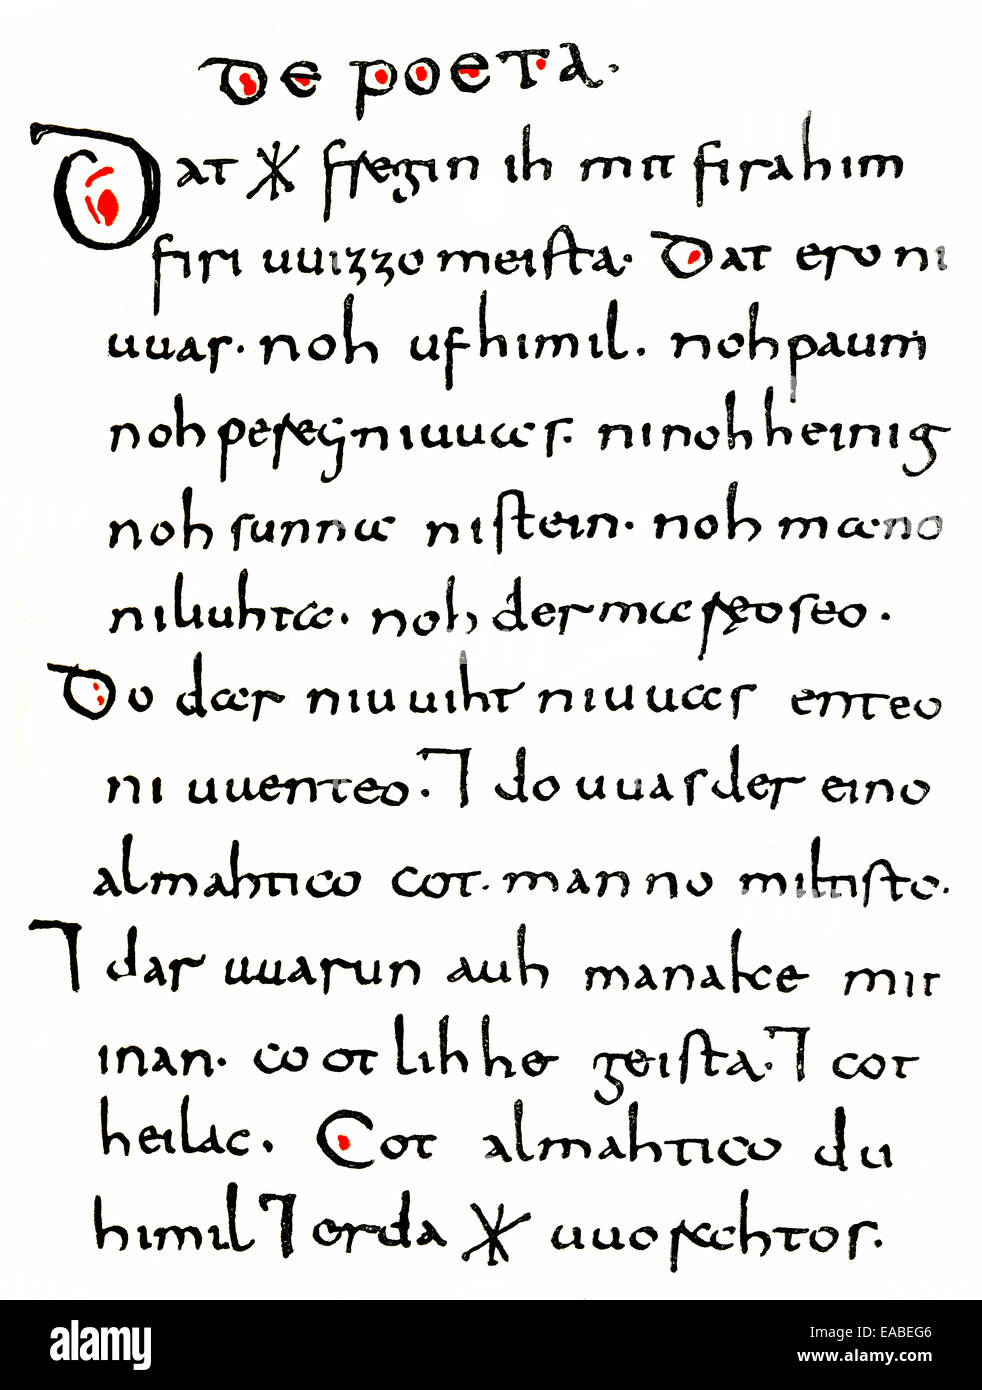 De poeta.
Dat * fregin ih mit firahim
firi uuizzo meista. Dat ero ni
uuas. noh ufhimil. noh paum
noh pereg. ni uuæs. ninohheinig
noh sunnæ ni stein. noh mæno
niliuhtæ. noh der mæręoseo.
Do dær niuuiht niuuæs enteo
ni uuenteo. ⁊ do uuas der eino
almahtico cot. manno miltisto.
⁊ dar uuarun auh manake mit
inan. cootlihhe geista. ⁊ cot
heilac. Cot almahtico du
himil ⁊ erda * uuorahtos.
alamy stock photo
EABEG6
www.alamy.com